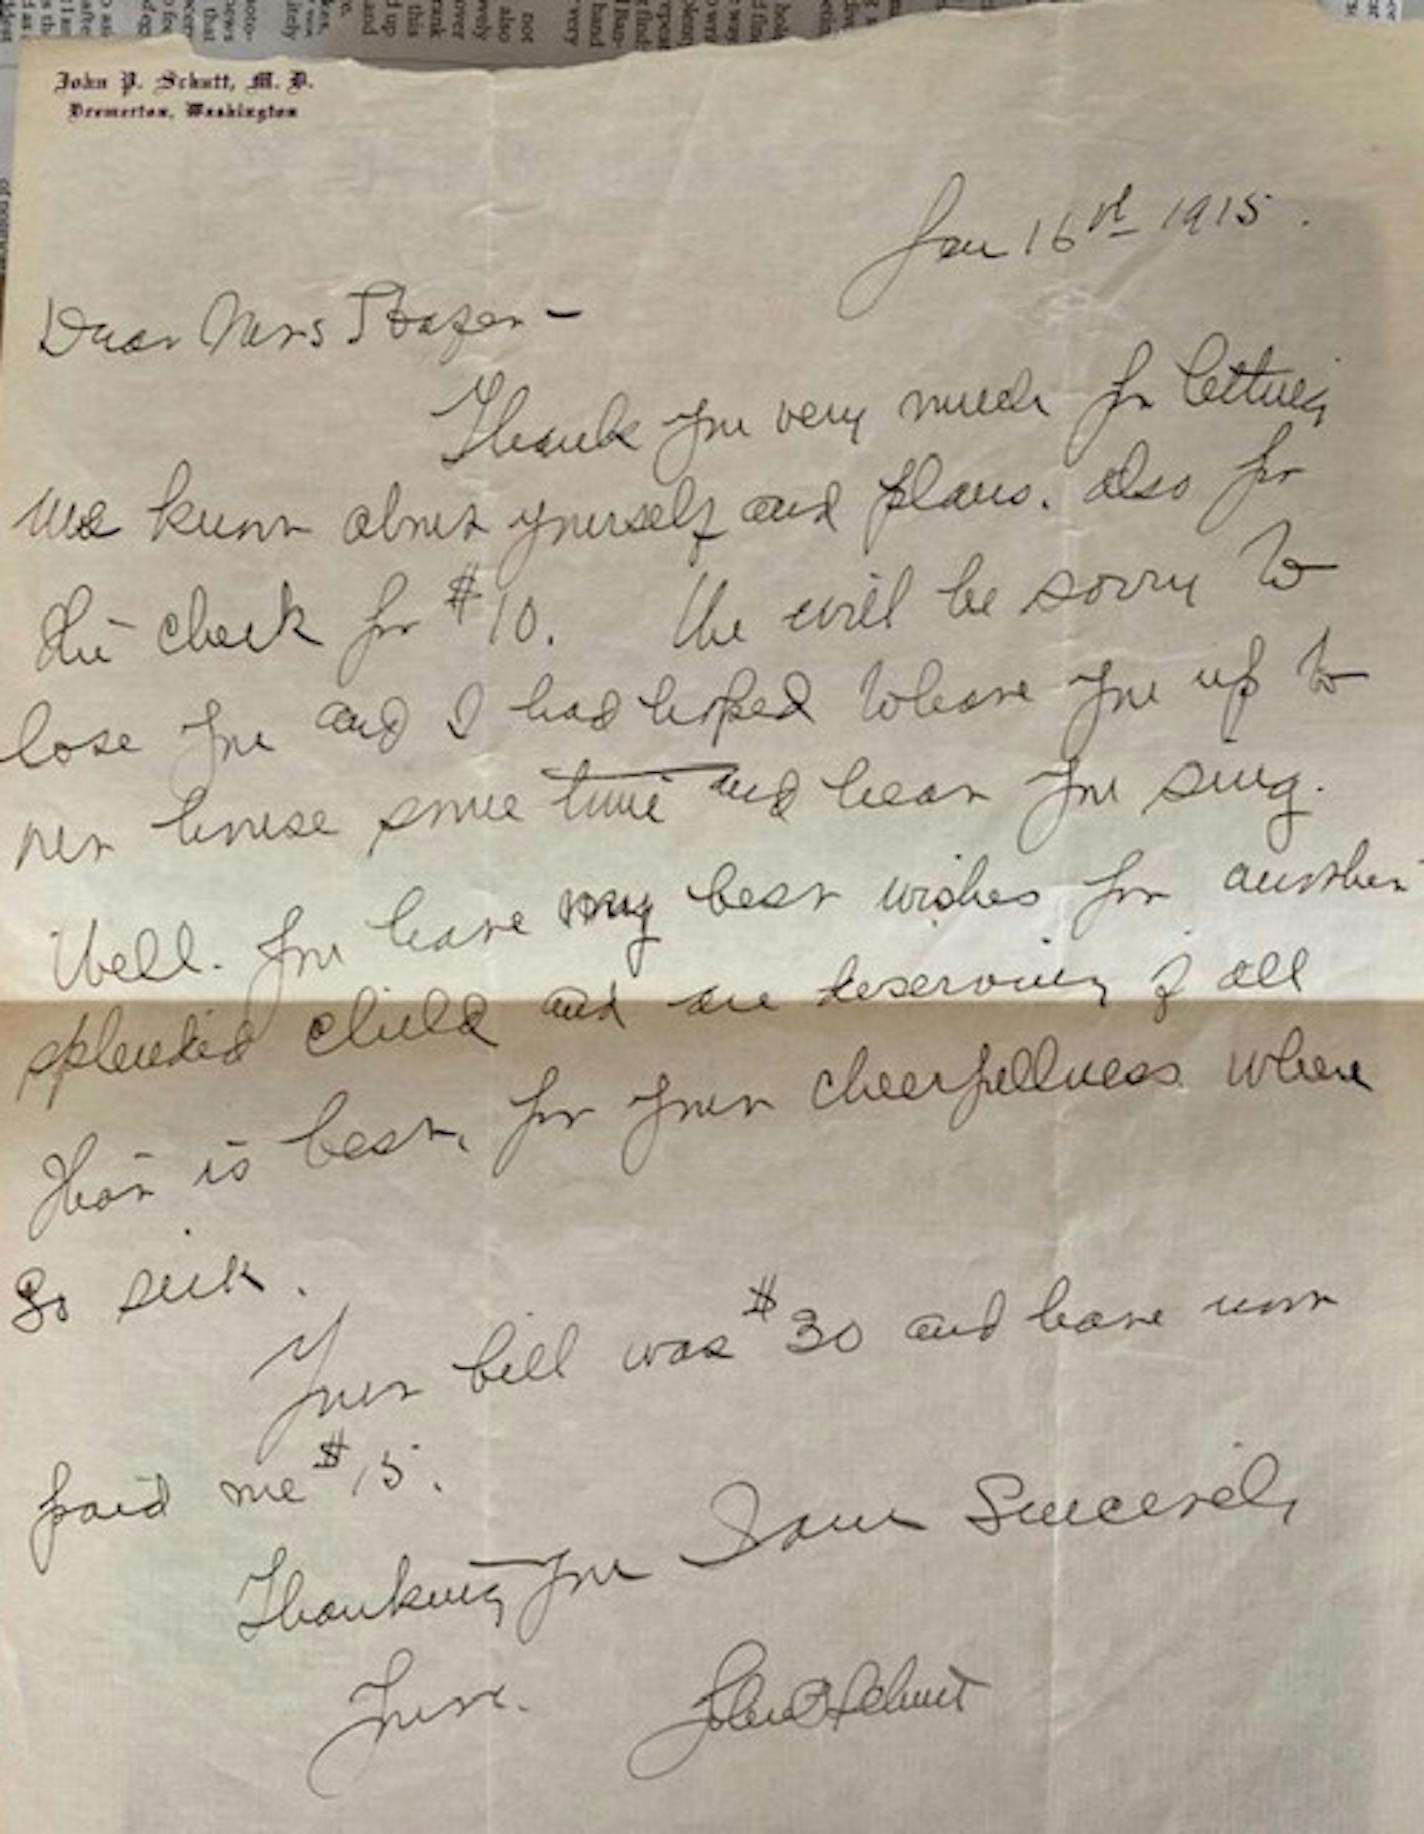 John P. Schutt, M. D.
Bremerton, Washington
Jan 16th 1915.
Dear Mrs
Thank you very much for letting
me know about yourself and plans. also for
the check for $10. We will be sorry to
lose you and I had hoped to have you up to
our house some time and hear you sing.
Well. you have my best wishes for another
splendid child and are deserving of all
that is best, for your cheerfullness when
so sick.
Your bill was $30 and have now
paid me $15.
Thanking you I am Sincerely
Yours. John P Schutt